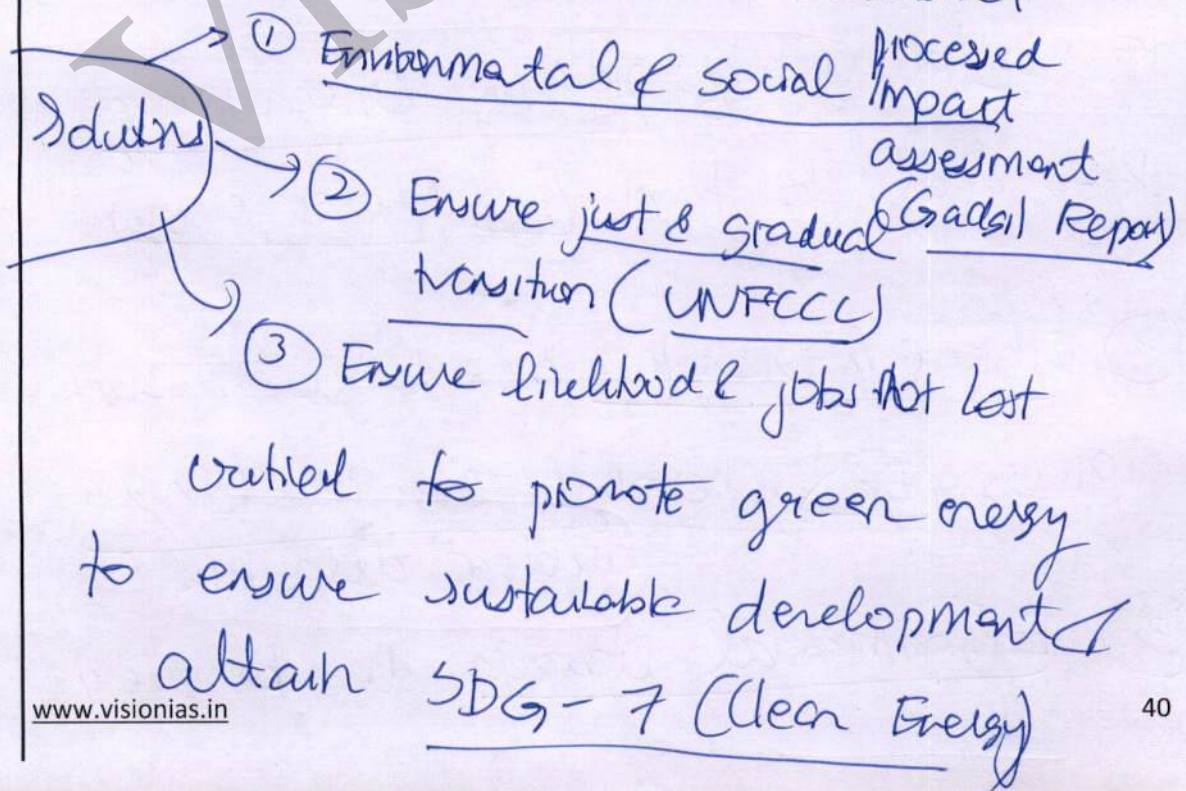 Solutions
① Environmental & Social Impact
assessment
(Gadgil Report)
② Ensure just & gradual
transition (UNFCCC)
③ Ensure livelihood & jobs not lost
critical to promote green energy
to ensure sustainable development &
attain SDG-7 (Clean Energy)
www.visionias.in
40